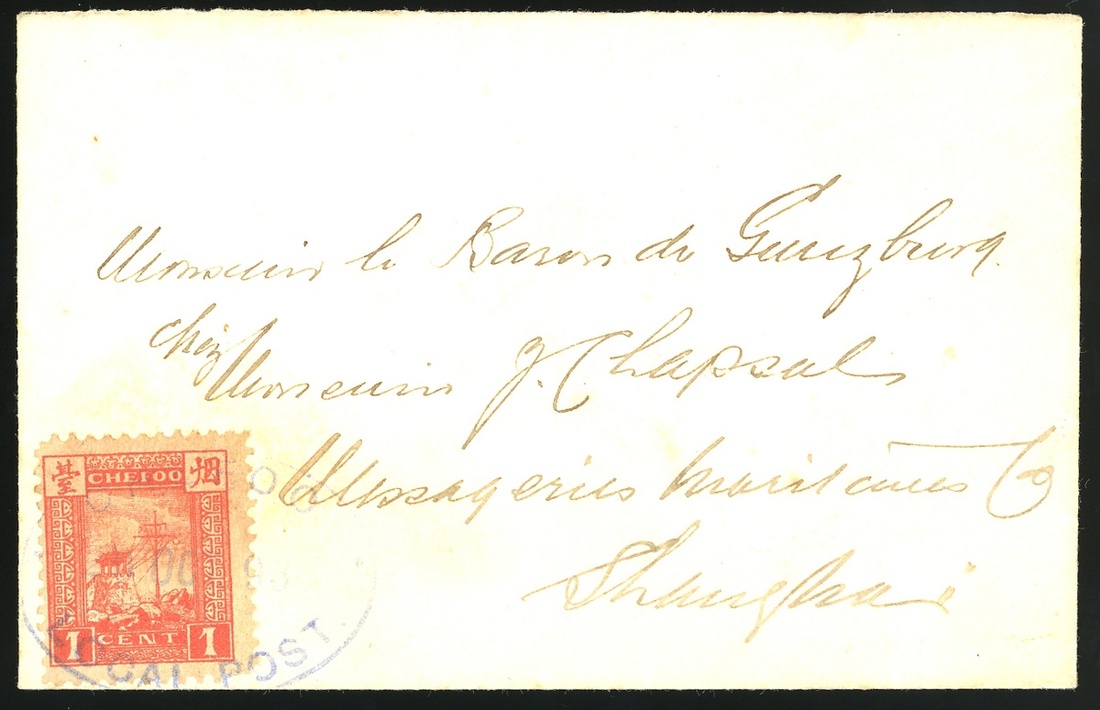 Monsieur le Baron de Gunzburg
chez Monsieur J. Chapsal
Messageries Maritimes Co
Shanghai
烟 CHEFOO 臺
1 CENT 1
CHEFOO
LOCAL POST